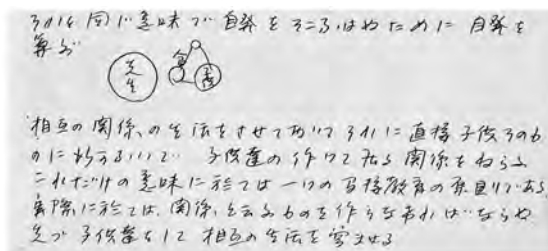 それは同じ意味で自発をそこなはぬために自発を
尊ぶ
先生
子供
相互の関係、の生活をさせておいてそれに直接子供そのも
のに 子供達の作つて居る関係をねらふ
これだけの意味に於ては一つの 教育の原則である
実際に於ては、関係、と云ふものを作らなければならぬ
先づ子供達をして相互の生活を営ませる